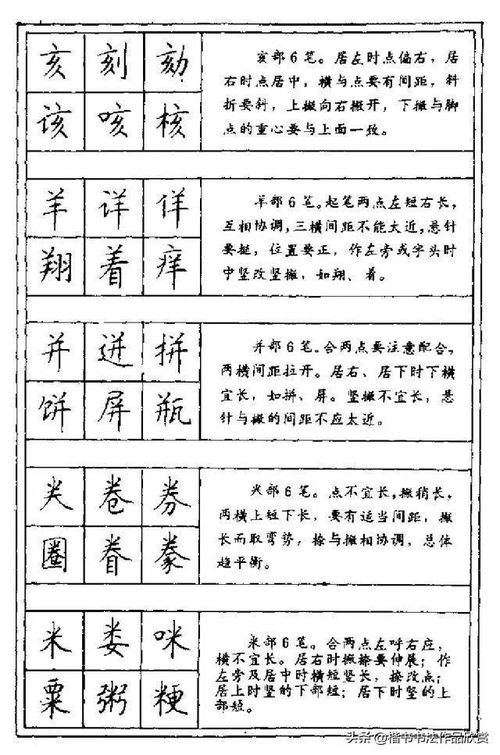 亥 刻 劾
该 咳 核
亥部6笔。居左时点偏右，居
右时点居中，横与点要有间距，斜
折要斜，上撇向右撇开，下撇与脚
点的重心要与上面一致。
羊 详 佯
翔 着 痒
羊部6笔。起笔两点左短右长，
互相协调，三横间距不能太近，悬针
要挺，位置要正，作左旁或字头时
中竖改竖撇，如翔、着。
并 迸 拼
饼 屏 瓶
并部6笔。合两点要注意配合，
两横间距拉开。居右、居下时下横
宜长，如拼、屏。竖撇不宜长，悬
针与撇的间距不应太近。
卷 券
圈 眷 豢
部6笔。点不宜长，撇稍长，
两横上短下长，要有适当间距，撇
长而取弯势，捺与撇相协调，总体
趋平衡。
米 娄 咪
粟 粥 粳
米部6笔。合两点左呼右应，
横不宜长。居右时撇捺要伸展；作
左旁及居中时横短竖长，捺改点；
居上时竖的下部短；居下时竖的上
部短。
头条@楷书书法作品欣赏